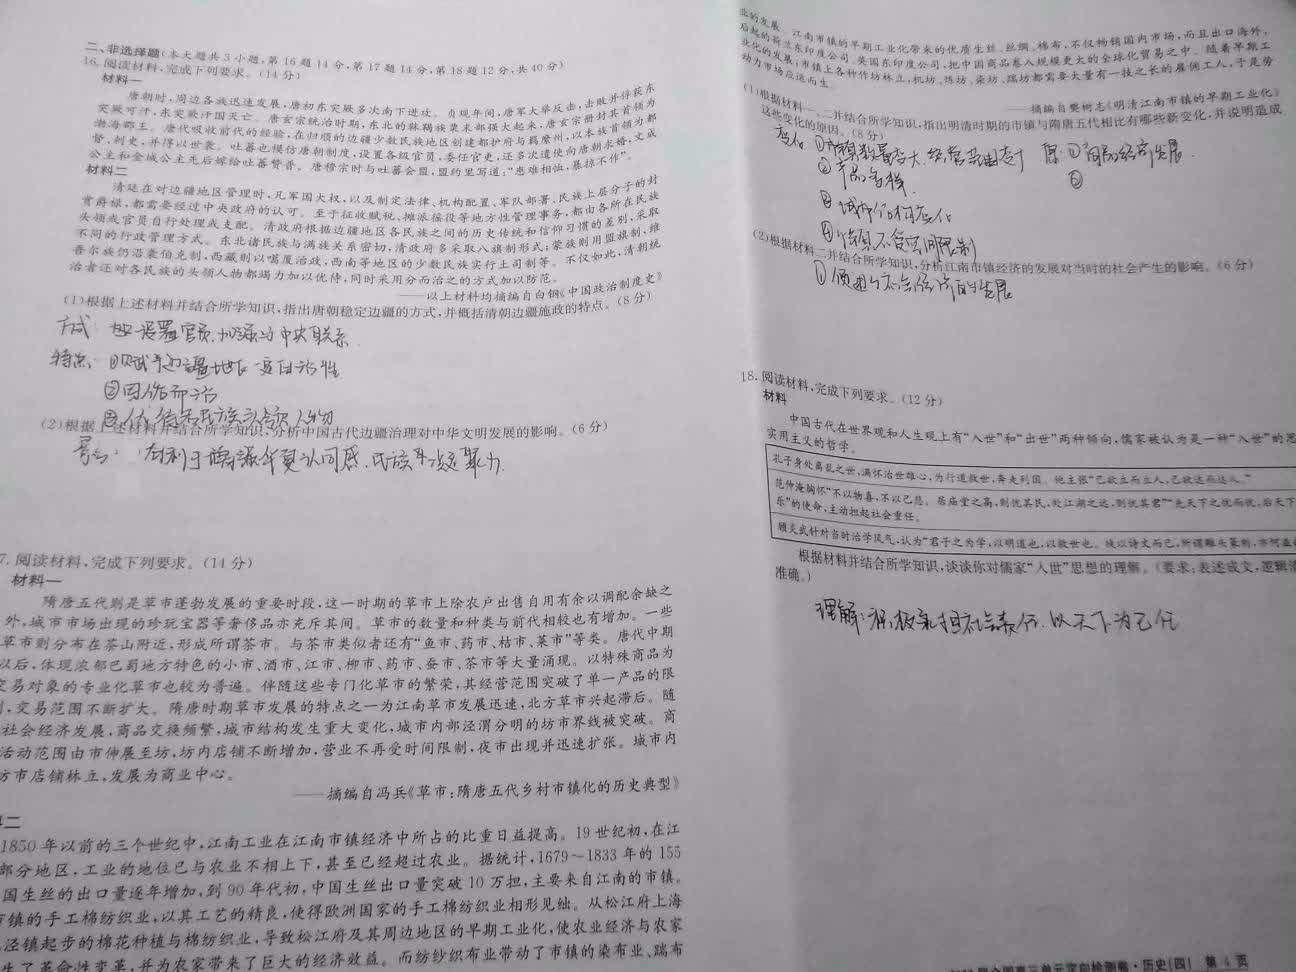 二、非选择题(本大题共3小题,第16题14分,第17题14分,第18题12分,共40分)
16.阅读材料,完成下列要求。(14分)
材料一
唐朝时,周边各族迅速发展,唐初东突厥多次南下进攻。贞观年间,唐军大举反击,击败并俘获东
突厥可汗,东突厥汗国灭亡。唐玄宗统治时期,东北的靺鞨族粟末部强大起来,唐玄宗册封其首领为
渤海郡王。唐代吸收前代的经验,在归顺的边疆少数民族地区创建都护府与羁縻州,以本族首领为都
督、刺史,并得以世袭。吐蕃也模仿唐朝制度,设置各级官员,委任官吏,还多次遣使向唐朝求婚,文成
公主和金城公主先后嫁给吐蕃赞普。唐穆宗时与吐蕃会盟,盟约里写道:“患难相恤,暴掠不作”。
材料二
清廷在对边疆地区管理时,凡军国大权,以及制定法律、机构配置、军队部署、民族上层分子的封
赏爵禄,都需要经过中央政府的认可。至于征收赋税、摊派徭役等地方性管理事务,都由各所在民族
头领或官员自行处理或支配。清政府根据边疆地区各民族之间的历史传统和信仰习惯的差别,采取
不同的行政管理方式。东北诸民族与满族关系密切,清政府多采取八旗制形式,蒙族则用盟旗制,维
吾尔族仍沿袭伯克制,西藏则以噶厦治政,西南等地区的少数民族实行土司制等。不仅如此,清朝统
治者还对各民族的头领人物都竭力加以优待,同时采用分而治之的方式加以防范。
——以上材料均摘编自白钢《中国政治制度史》
(1)根据上述材料并结合所学知识,指出唐朝稳定边疆的方式,并概括清朝边疆施政的特点。(8分)
方式 设置官员,加强与中央联系
特点:①赋予边疆地区一定自治性
②因俗而治
③优待各民族头领人物
(2)根据上述材料并结合所学知识,分析中国古代边疆治理对中华文明发展的影响。(6分)
影响:有利于增强华夏认同感,民族凝聚力.
7.阅读材料,完成下列要求。(14分)
材料一
隋唐五代则是草市蓬勃发展的重要时段,这一时期的草市上除农户出售自用有余以调配余缺之
外,城市市场出现的珍玩宝器等奢侈品亦充斥其间。草市的数量和种类与前代相较也有增加。一些
草市则分布在茶山附近,形成所谓茶市。与茶市类似者还有“鱼市、药市、桔市、菜市”等类。唐代中期
以后,体现浓郁巴蜀地方特色的小市、酒市、江市、柳市、药市、蚕市、茶市等大量涌现。以特殊商品为
交易对象的专业化草市也较为普遍。伴随这些专门化草市的繁荣,其经营范围突破了单一产品的限
,交易范围不断扩大。隋唐时期草市发展的特点之一为江南草市发展迅速,北方草市兴起滞后。随
社会经济发展,商品交换频繁,城市结构发生重大变化,城市内部泾渭分明的坊市界线被突破。商
活动范围由市伸展至坊,坊内店铺不断增加,营业不再受时间限制,夜市出现并迅速扩张。城市内
坊市店铺林立,发展为商业中心。
——摘编自冯兵《草市:隋唐五代乡村市镇化的历史典型》
二
1850年以前的三个世纪中,江南工业在江南市镇经济中所占的比重日益提高。19世纪初,在江
部分地区,工业的地位已与农业不相上下,甚至已经超过农业。据统计,1679~1833年的155
国生丝的出口量逐年增加,到90年代初,中国生丝出口量突破10万担,主要来自江南的市镇。
市镇的手工棉纺织业,以其工艺的精良,使得欧洲国家的手工棉纺织业相形见绌。从松江府上海
泾镇起步的棉花种植与棉纺织业,导致松江府及其周边地区的早期工业化,使农业经济与农家
生了革命性变革,并为农家带来了巨大的经济效益。而纺纱织布业带动了市镇的染布业、踹布
业的发展。江南市镇的早期工业化带来的优质生丝、丝绸、棉布,不仅畅销国内市场,而且出口海外,
后起的荷兰东印度公司、英国东印度公司,把中国商品卷入规模更大的全球化贸易之中。随着早期工
业化的发展,市镇上各种作坊林立,机坊、炼坊、染坊、踹坊都需要大量有一技之长的雇佣工人,于是劳
动力市场应运而生。
——摘编自樊树志《明清江南市镇的早期工业化》
(1)根据材料一、二并结合所学知识,指出明清时期的市镇与隋唐五代相比有哪些新变化,并说明造成
这些变化的原因。(8分)
变化 ①市镇数量增大,经营范围扩大 原:①商品经济发展.
②产品多样 ②
③城市结构变化
④市镇不受空间限制
(2)根据材料二并结合所学知识,分析江南市镇经济的发展对当时的社会产生的影响。(6分)
①便利商品经济的发展
18.阅读材料,完成下列要求。(12分)
材料
中国古代在世界观和人生观上有“入世”和“出世”两种倾向,儒家被认为是一种“入世”的思
实用主义的哲学。
孔子身处离乱之世,满怀治世雄心,为行道救世,奔走列国。他主张“己欲立而立人,己欲达而达人。”
范仲淹胸怀“不以物喜,不以己悲。居庙堂之高,则忧其民,处江湖之远,则忧其君”“先天下之忧而忧,后天下
乐”的使命,主动担起社会责任。
顾炎武针对当时治学风气,认为“君子之为学,以明道也,以救世也。徒以诗文而已,所谓雕虫篆刻,亦何益
根据材料并结合所学知识,谈谈你对儒家“入世”思想的理解。(要求:表述成文,逻辑清
准确。)
理解:积极承担社会责任,以天下为己任
历史(四) 第 4 页